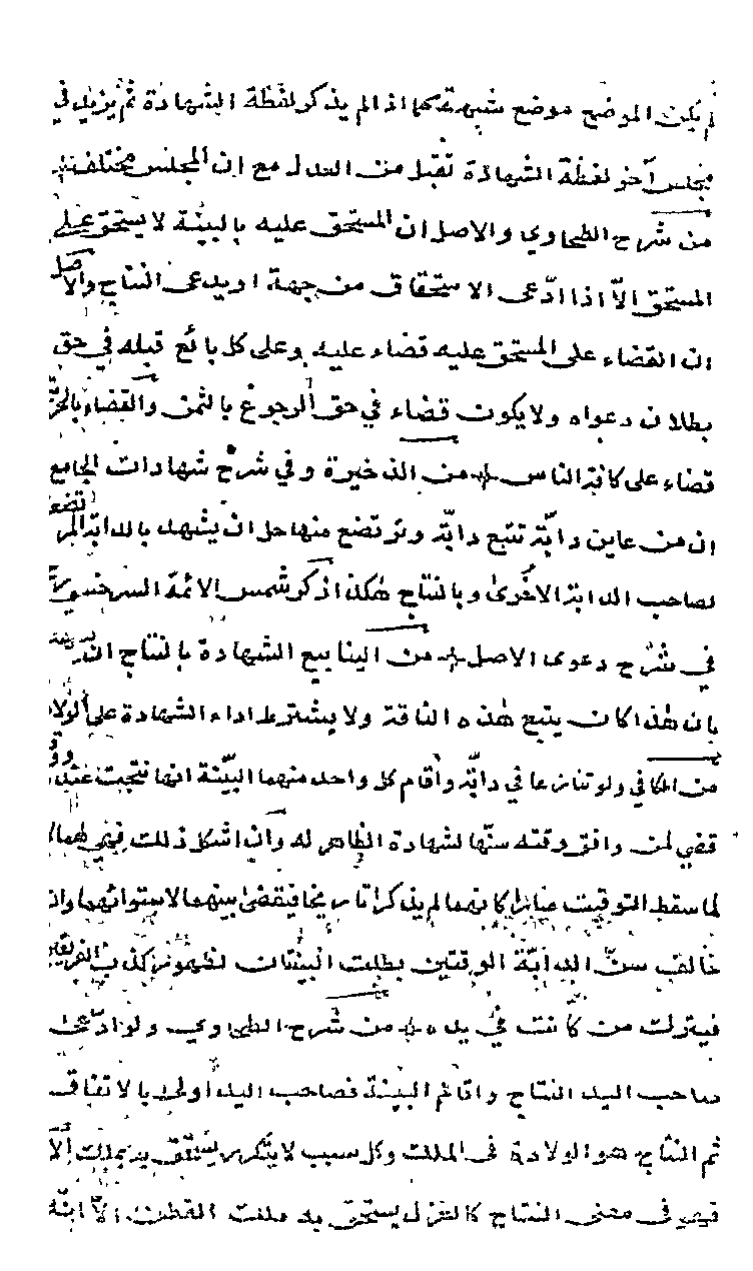 لم يكن الموضع موضع شبهة كما اذا لم يذكر لفظة الشهادة ثم يزيد في
مجلس آخر لفظة الشهادة تقبل من العدل مع ان المجلس مختلف
من شرح الطحاوي والاصل ان المستحق عليه بالبينة لا يستحق على
المستحق الا اذا ادعى الاستحقاق من جهة او يدعى النتاج والاصل
ان القضاء على المستحق عليه قضاء عليه وعلى كل بائع قبله في حق
بطلان دعواه ولا يكون قضاء في حق الرجوع بالثمن والقضاء بالحرية
قضاء على كافة الناس من الذخيرة وفي شرح شهادات الجامع
ان من عاين دابة تتبع دابة وترتضع منها حل ان يشهد بالدابة المرتضعة
لصاحب الدابة الاخرى وبالنتاج هكذا ذكر شمس الائمة السرخسي
في شرح دعوى الاصل من الينابيع الشهادة بالنتاج ان
بان هذا كان يتبع هذه الناقة ولا يشترط اداء الشهادة على الولادة
من الكافي ولو تنازعا في دابة واقام كل واحد منهما البينة انها نتجت عنده
قضي لمن وافق وقته سنها لشهادة الظاهر له وان اشكل ذلك فهي لهما
لما سقط التوقيت صارا كانهما لم يذكرا تاريخا فيقضى بينهما لاستوائهما وان
خالف سن الدابة الوقتين بطلت البينتان لظهور كذب الفريقين
فيترك من كانت في يده من شرح الطحاوي ولو ادعى
صاحب اليد النتاج واقام البينة فصاحب اليد اولى بالاتفاق
ثم النتاج هو الولادة في الملك وكل سبب لا يتكرر يستحق به ملك الا
فهو في معنى النتاج كالغزل يستحق به ملك القطن الا انه